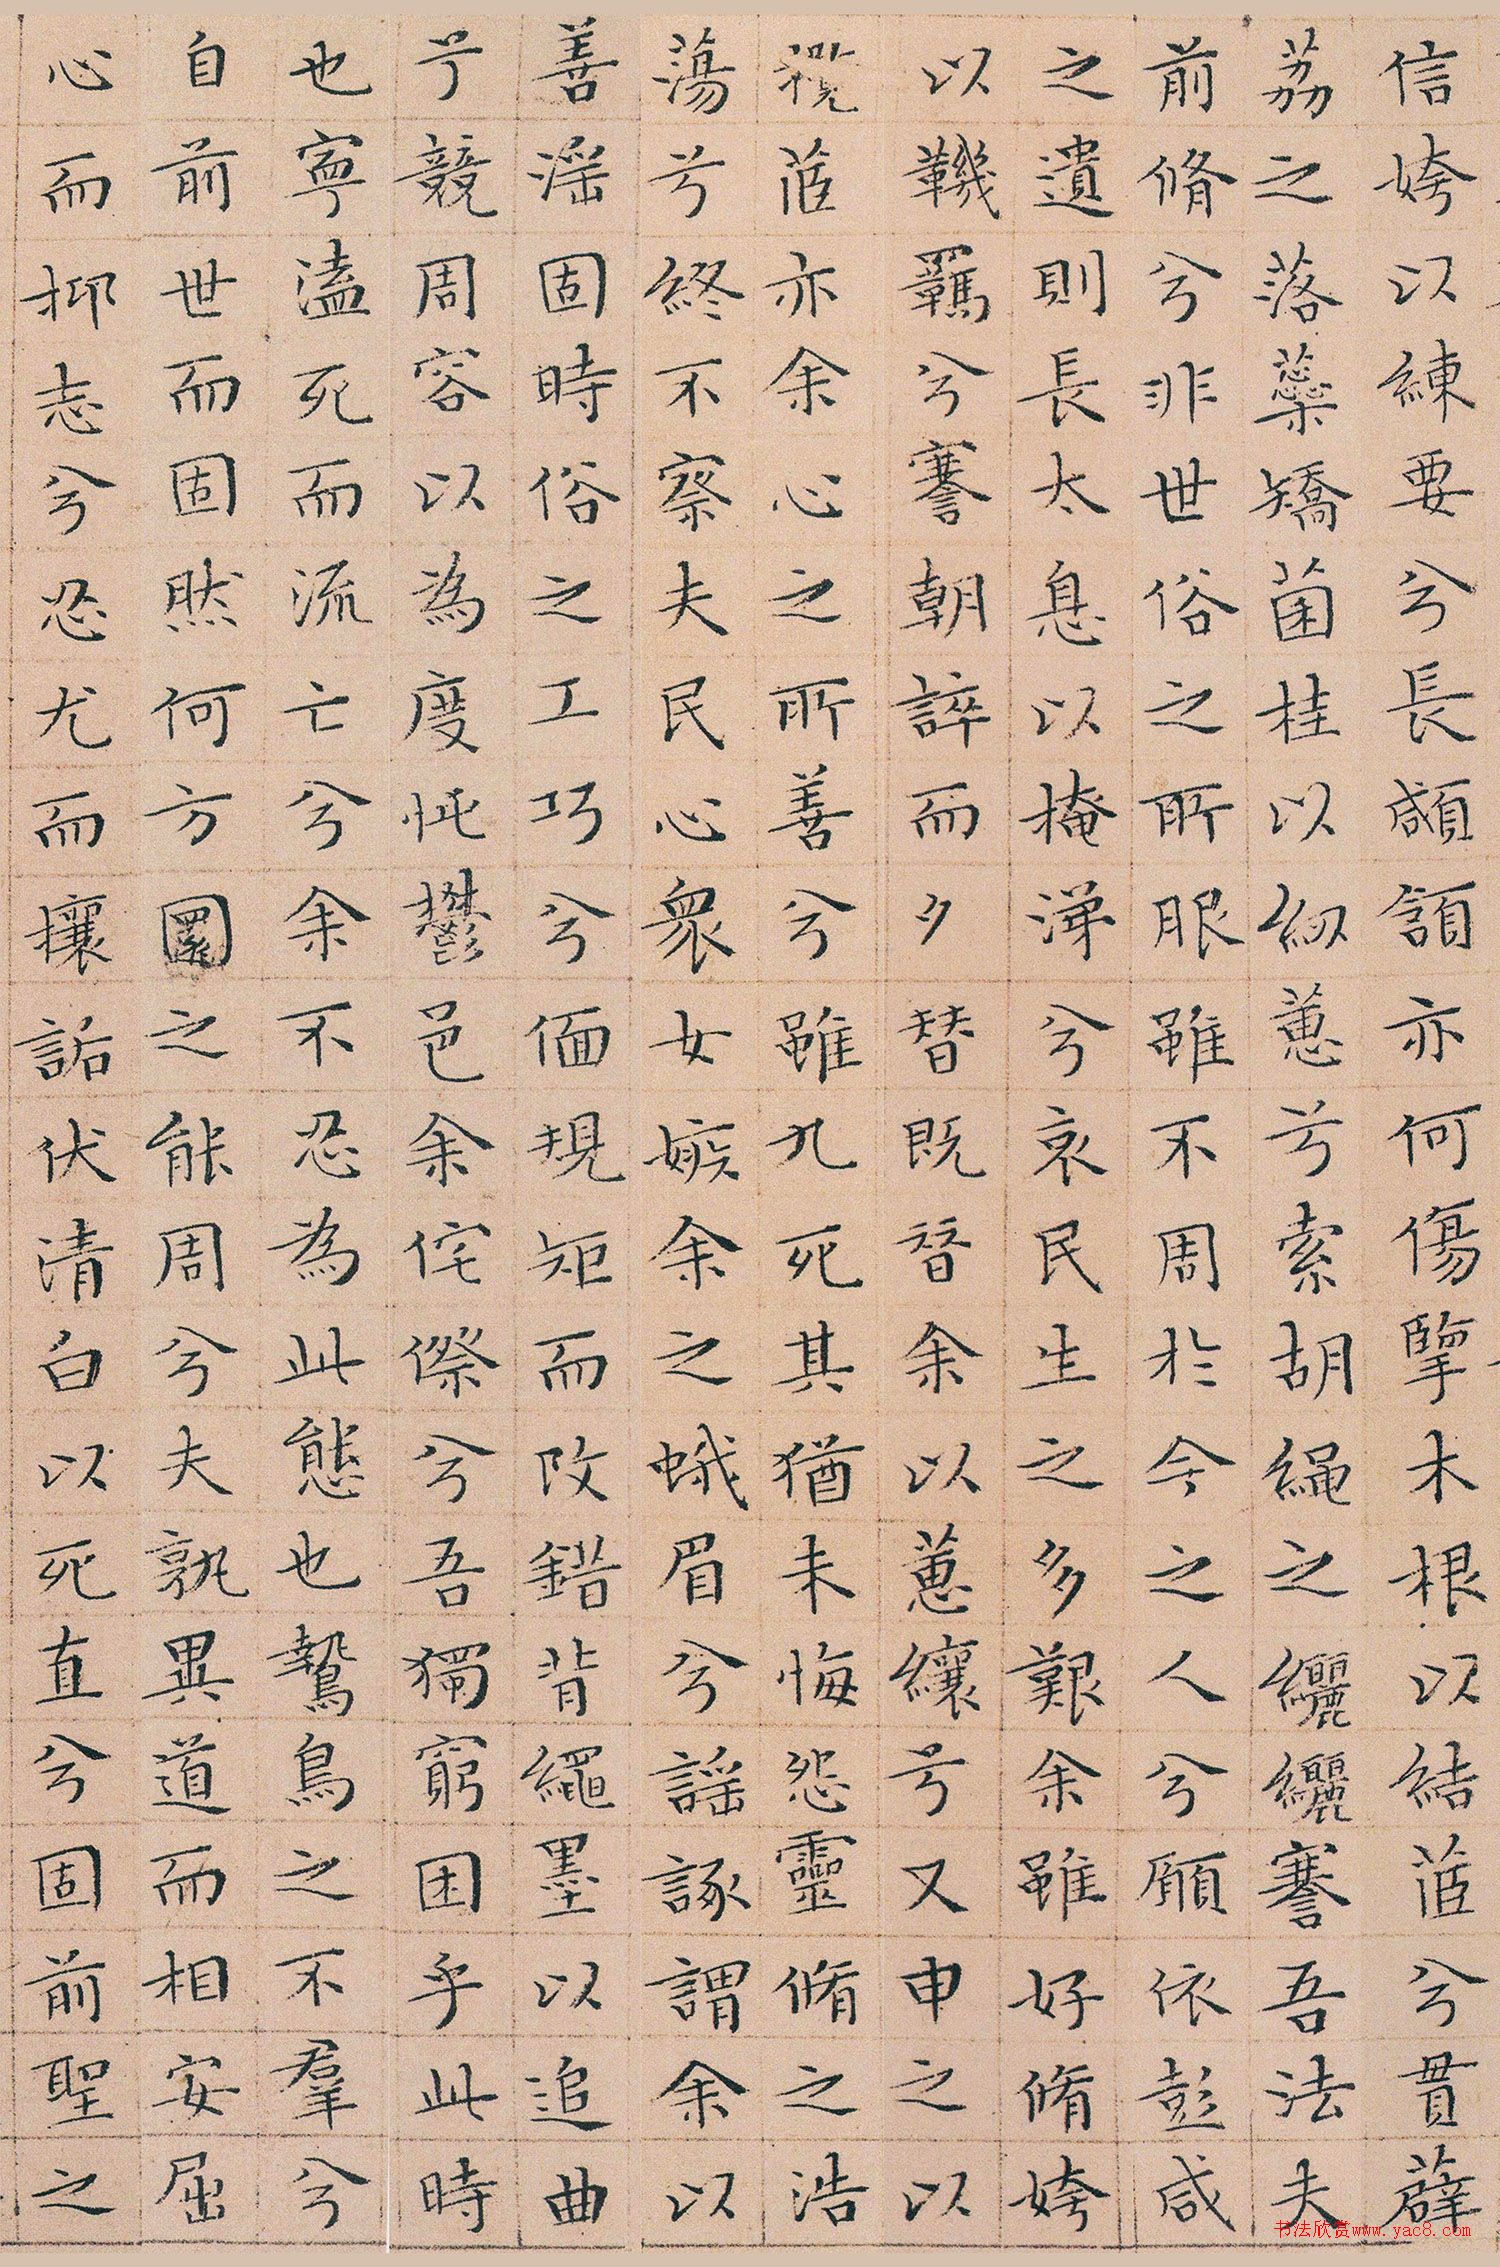 信姱以練要兮長顑頷亦何傷擥木根以結茝兮貫薜
荔之落蘂矯菌桂以紉蕙兮索胡繩之纚纚謇吾法夫
前脩兮非世俗之所服雖不周於今之人兮願依彭咸
之遺則長太息以掩涕兮哀民生之多艱余雖好脩姱
以鞿羈兮謇朝誶而夕替既替余以蕙纕兮又申之以
攬茝亦余心之所善兮雖九死其猶未悔怨靈脩之浩
蕩兮終不察夫民心眾女嫉余之蛾眉兮謠諑謂余以
善淫固時俗之工巧兮偭規矩而改錯背繩墨以追曲
兮競周容以為度忳鬱邑余侘傺兮吾獨窮困乎此時
也寧溘死而流亡兮余不忍為此態也鷙鳥之不羣兮
自前世而固然何方圜之能周兮夫孰異道而相安屈
心而抑志兮忍尤而攘詬伏清白以死直兮固前聖之
书法欣赏www.yac8.com